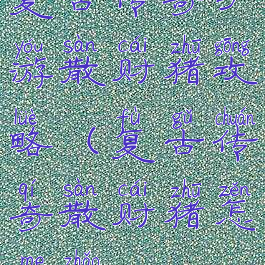 复古传奇
yóu sàn cái zhū gōng
游散财猪攻
lüè fù gǔ chuán
略（复古传
qí sàn cái zhū zěn
奇散财猪怎
me zhǎo